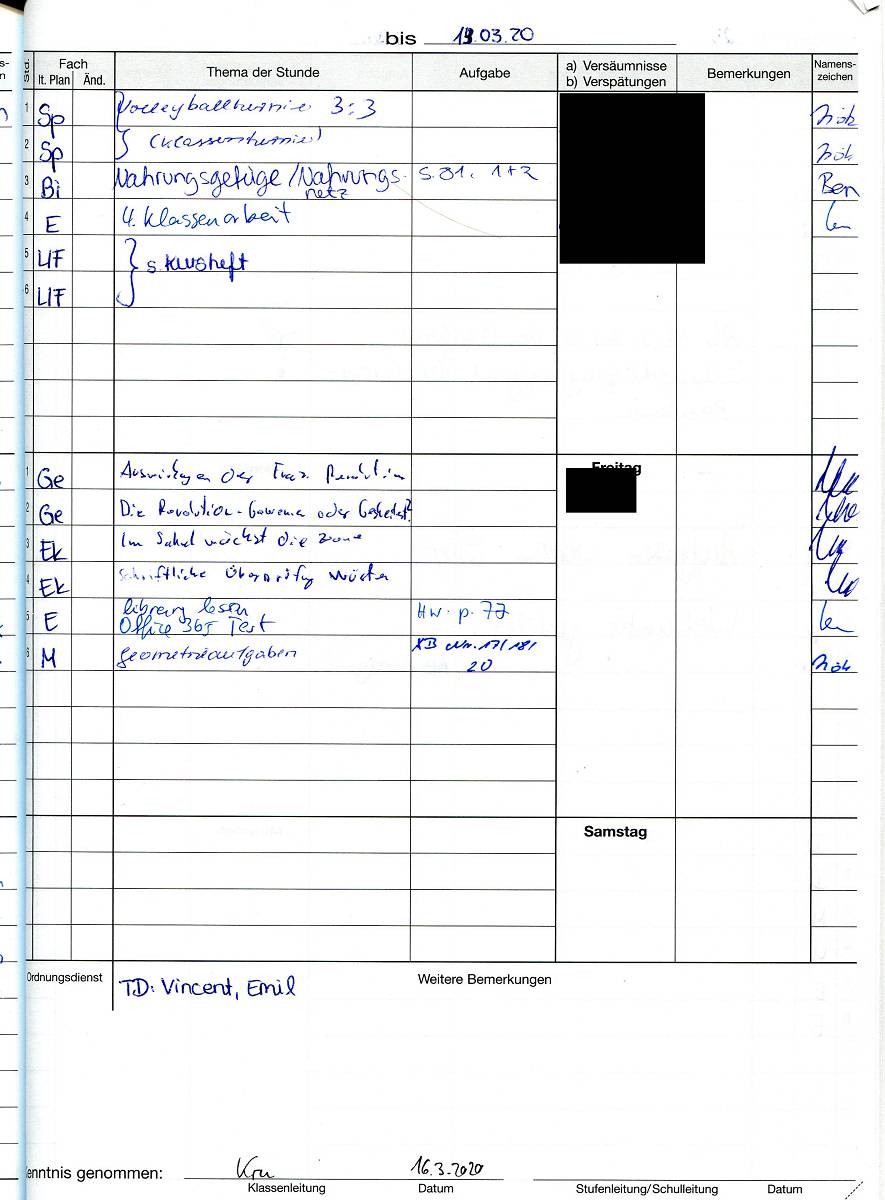 bis 13.03.20
Std. Fach Thema der Stunde Aufgabe a) Versäumnisse Bemerkungen Namens-
lt. Plan Änd. b) Verspätungen zeichen
1 Sp Volleyballturnier 3:3 Nök
2 Sp (Klassenturnier) Nök
3 Bi Nahrungsgefüge/Nahrungs- S. 81. 1+2 Ben
netz
4 E 4. Klassenarbeit
5 LIF s. Kursheft
6 LIF
Freitag
1 Ge Auswirkungen der Franz. Revolution
2 Ge Die Revolution - Gewonnen oder Gescheitert?
3 Ek Im Sahel wächst die
4 Ek Schriftliche Überprüfung Wüsten
5 E library lesson HW. p. 72
Office 365 Test
6 M Geometrieaufgaben Nr. 17/18/ Nök
20
Samstag
Ordnungsdienst TD: Vincent, Emil Weitere Bemerkungen
enntnis genommen: Kru 16.3.2020
Klassenleitung Datum Stufenleitung/Schulleitung Datum